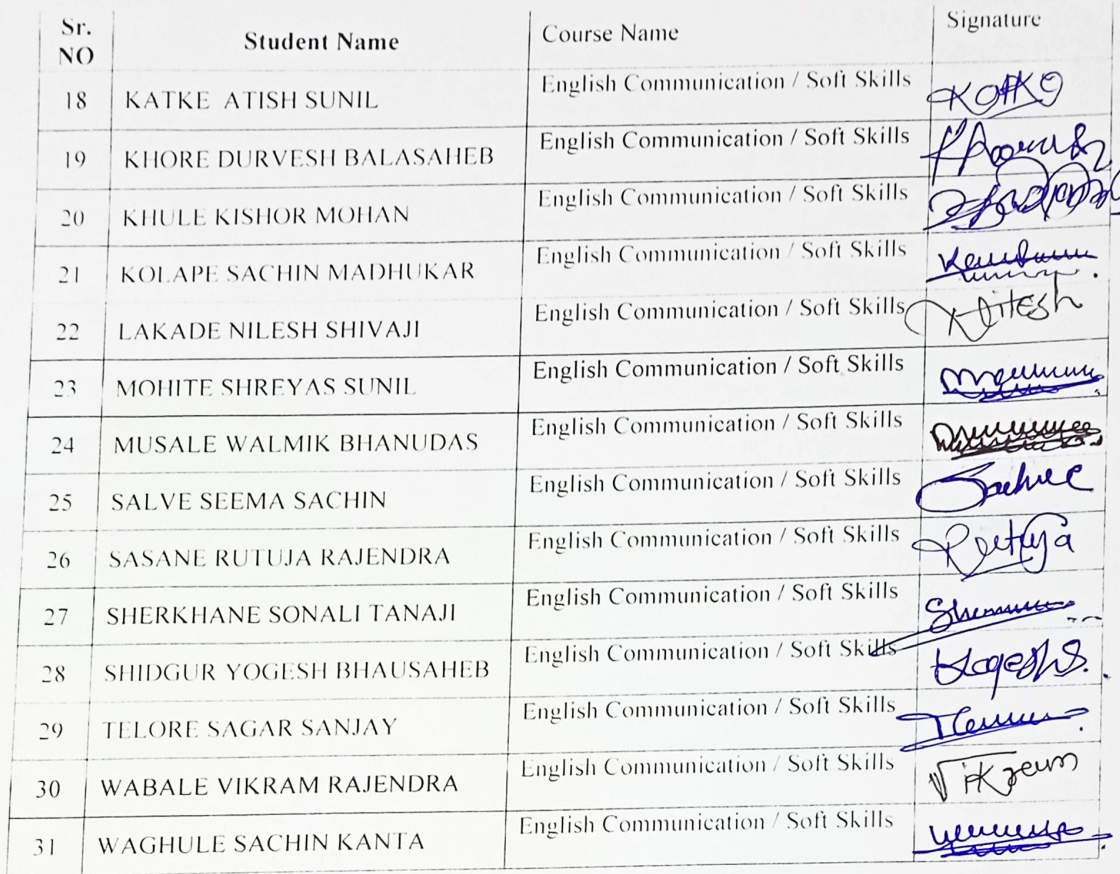 Sr. NO Student Name Course Name Signature
18 KATKE ATISH SUNIL English Communication / Soft Skills Katke
19 KHORE DURVESH BALASAHEB English Communication / Soft Skills
20 KHULE KISHOR MOHAN English Communication / Soft Skills
21 KOLAPE SACHIN MADHUKAR English Communication / Soft Skills
22 LAKADE NILESH SHIVAJI English Communication / Soft Skills
23 MOHITE SHREYAS SUNIL English Communication / Soft Skills
24 MUSALE WALMIK BHANUDAS English Communication / Soft Skills
25 SALVE SEEMA SACHIN English Communication / Soft Skills
26 SASANE RUTUJA RAJENDRA English Communication / Soft Skills Rutuja
27 SHERKHANE SONALI TANAJI English Communication / Soft Skills
28 SHIDGUR YOGESH BHAUSAHEB English Communication / Soft Skills
29 TELORE SAGAR SANJAY English Communication / Soft Skills
30 WABALE VIKRAM RAJENDRA English Communication / Soft Skills Vikram
31 WAGHULE SACHIN KANTA English Communication / Soft Skills